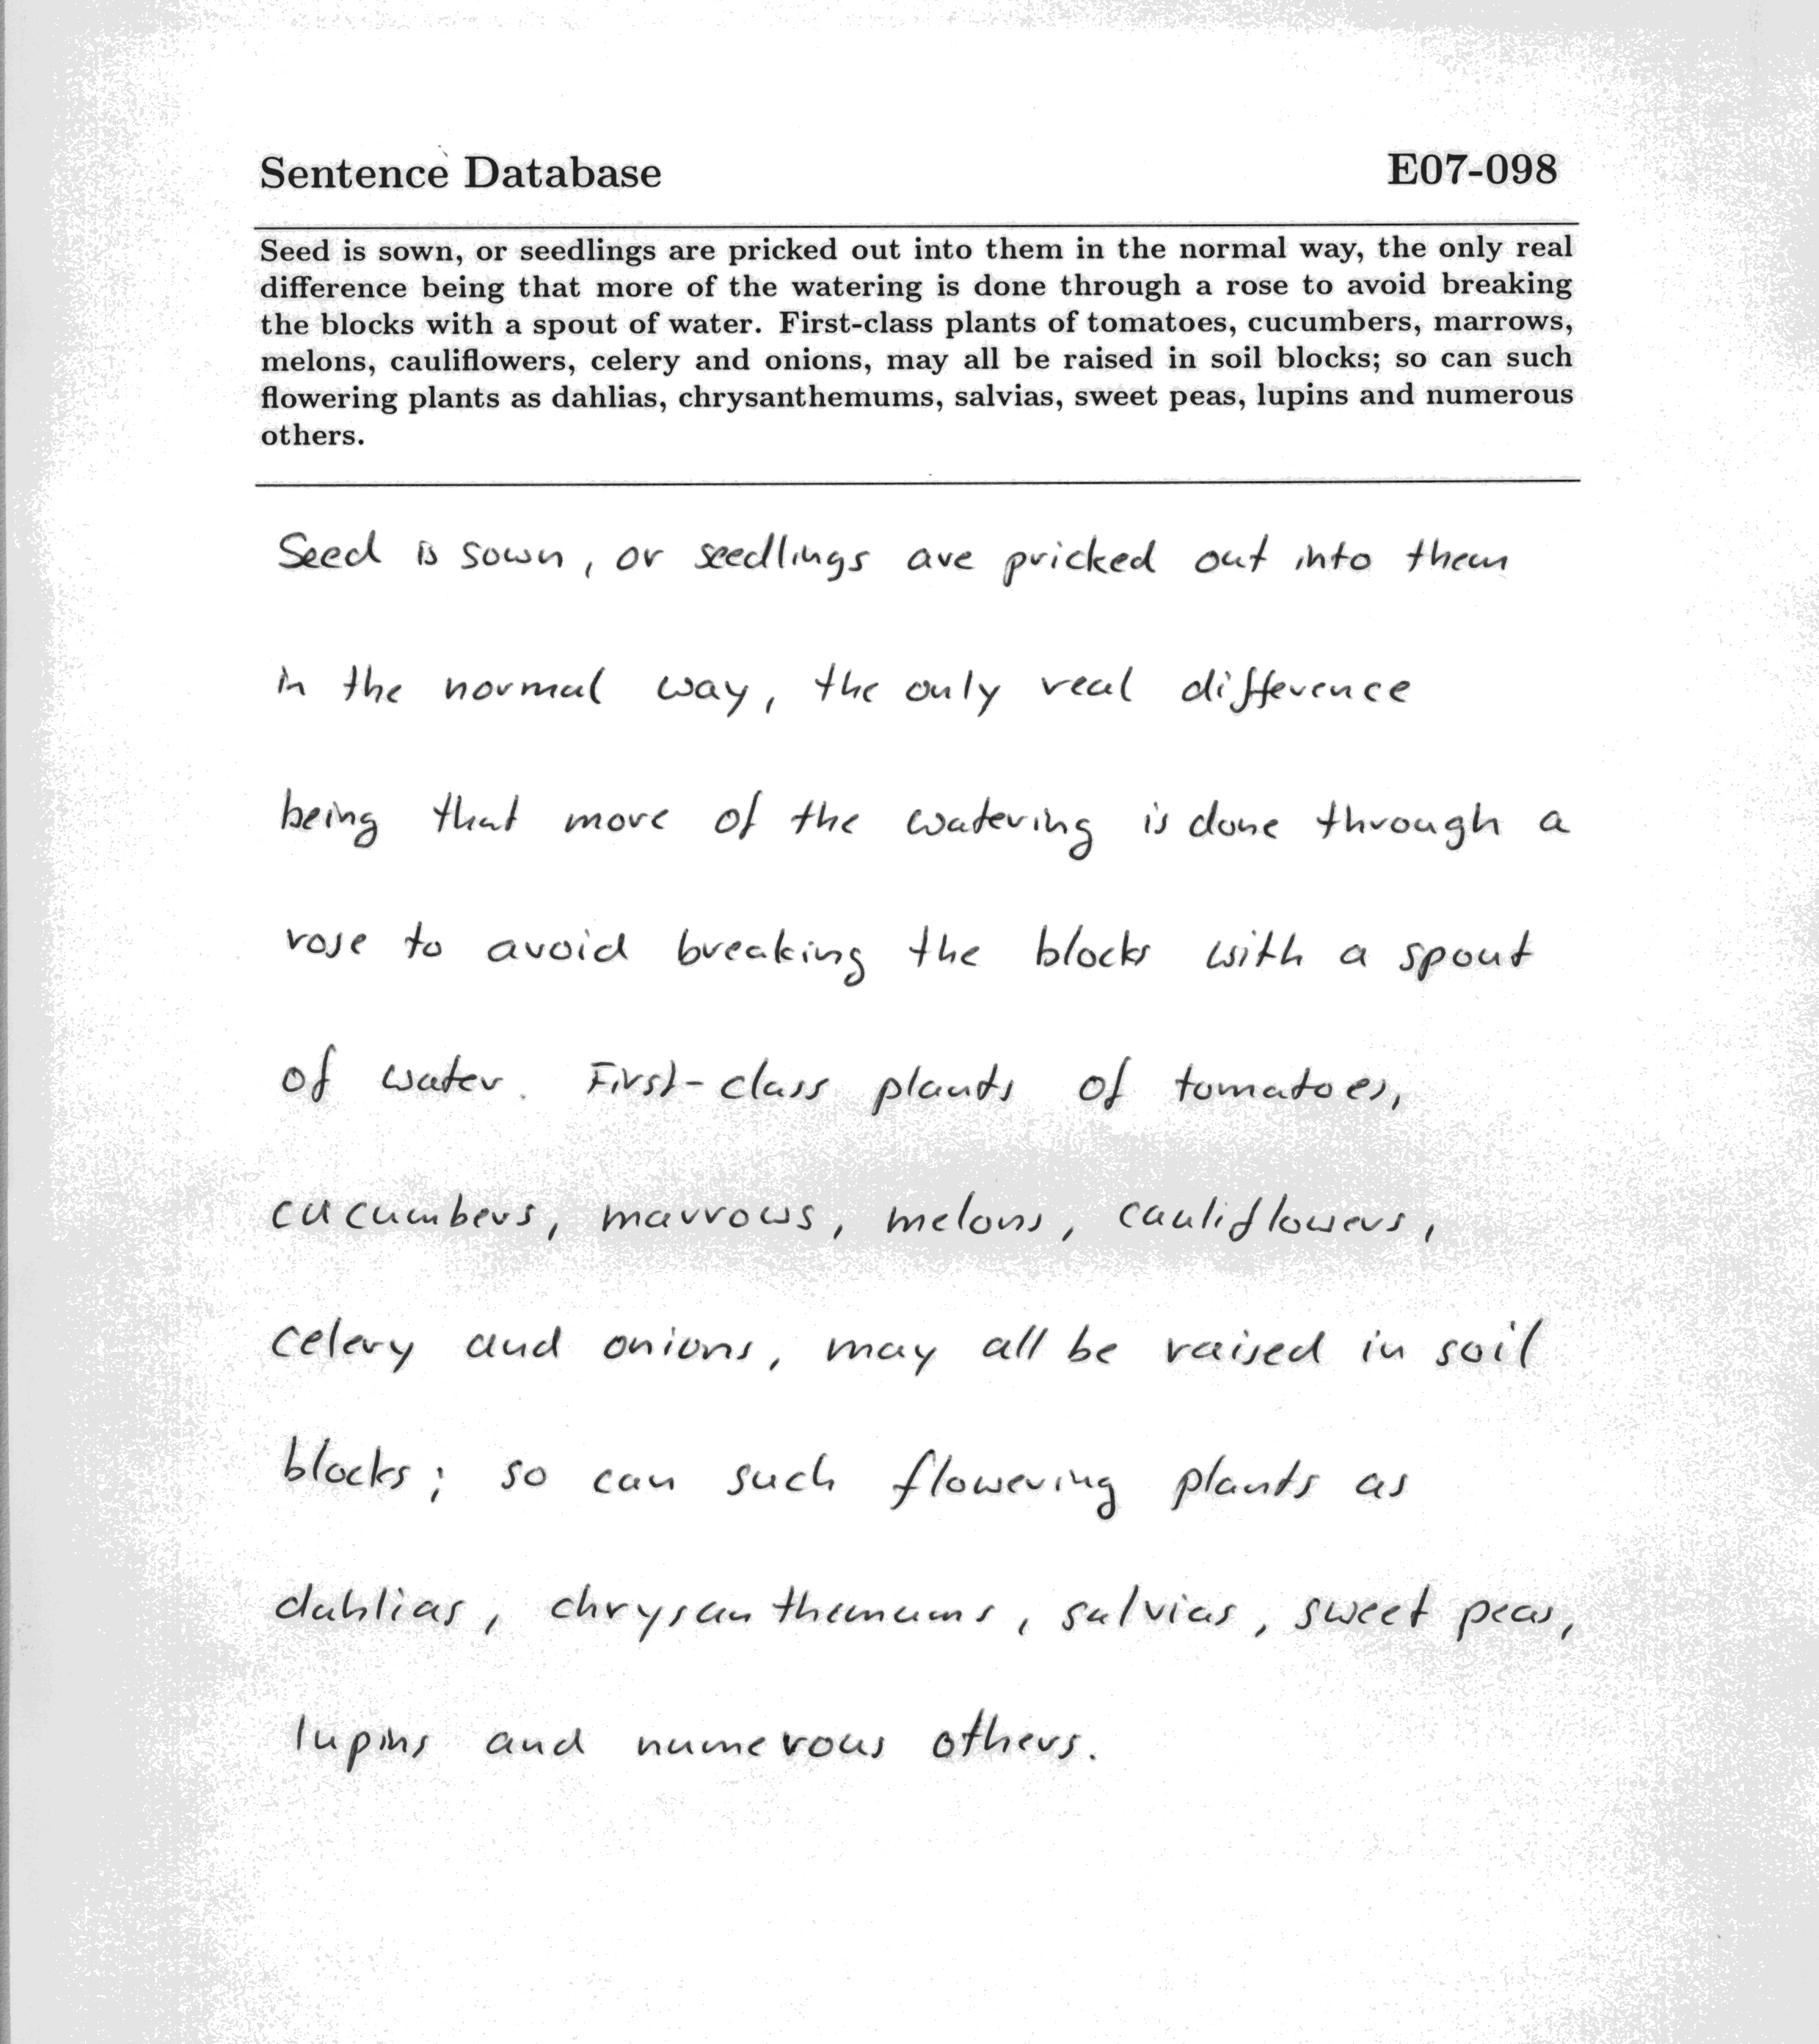 Sentence Database E07-098
Seed is sown, or seedlings are pricked out into them in the normal way, the only real
difference being that more of the watering is done through a rose to avoid breaking
the blocks with a spout of water. First-class plants of tomatoes, cucumbers, marrows,
melons, cauliflowers, celery and onions, may all be raised in soil blocks; so can such
flowering plants as dahlias, chrysanthemums, salvias, sweet peas, lupins and numerous
others.
Seed is sown, or seedlings are pricked out into them
in the normal way, the only real difference
being that more of the watering is done through a
rose to avoid breaking the blocks with a spout
of water. First-class plants of tomatoes,
cucumbers, marrows, melons, cauliflowers,
celery and onions, may all be raised in soil
blocks; so can such flowering plants as
dahlias, chrysanthemums, salvias, sweet peas,
lupins and numerous others.